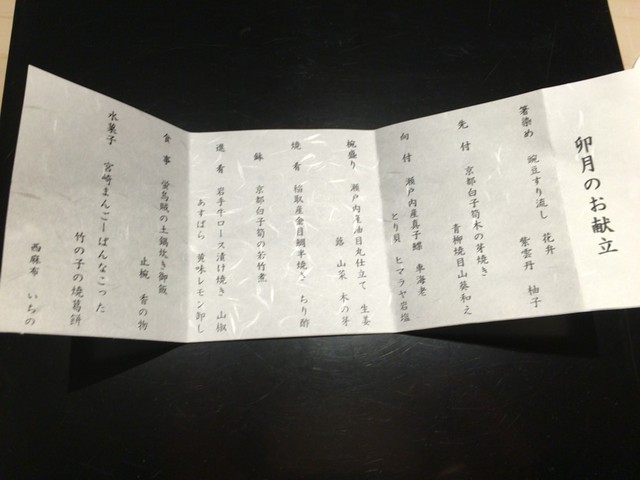 卯月のお献立
箸染め 豌豆すり流し 花弁
紫雲丹 柚子
先付 京都白子筍木の芽焼き
青柳焼目山葵和え
向付 瀬戸内産真子鰈 車海老
とり貝 ヒマラヤ岩塩
椀盛り 瀬戸内産油目丸仕立て 生姜
蕗 山菜 木の芽
焼肴 稲取産金目鯛半焼き ちり酢
鉢 京都白子筍の若竹煮
進肴 岩手牛ロース漬け焼き 山椒
あすぱら 黄味レモン卸し
食事 蛍烏賊の土鍋炊き御飯
止椀 香の物
水菓子 宮崎まんごーぱんなこった
竹の子の焼葛餅
西麻布 いちの